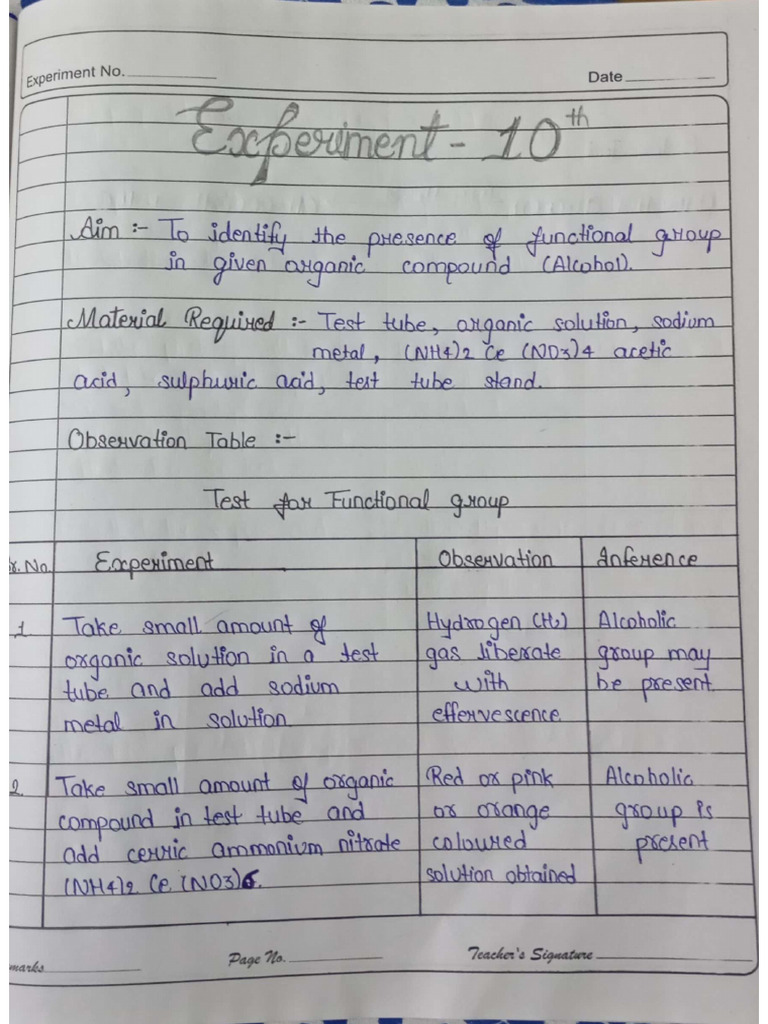 Experiment No.
Date
Experiment - 10th
Aim :- To identify the presence of functional group
in given organic compound (Alcohol).
Material Required :- Test tube, organic solution, sodium
metal, (NH4)2 Ce (NO3)4 acetic
acid, sulphuric acid, test tube stand.
Observation Table :-
Test for Functional group
r. No. Experiment Observation Inference
1 Take small amount of Hydrogen (H2) Alcoholic
organic solution in a test gas liberate group may
tube and add sodium with be present.
metal in solution effervescence
2 Take small amount of organic Red or pink Alcoholic
compound in test tube and or orange group is
add cerric ammonium nitrate coloured present
(NH4)2 Ce (NO3)6. solution obtained
marks
Page No.
Teacher's Signature